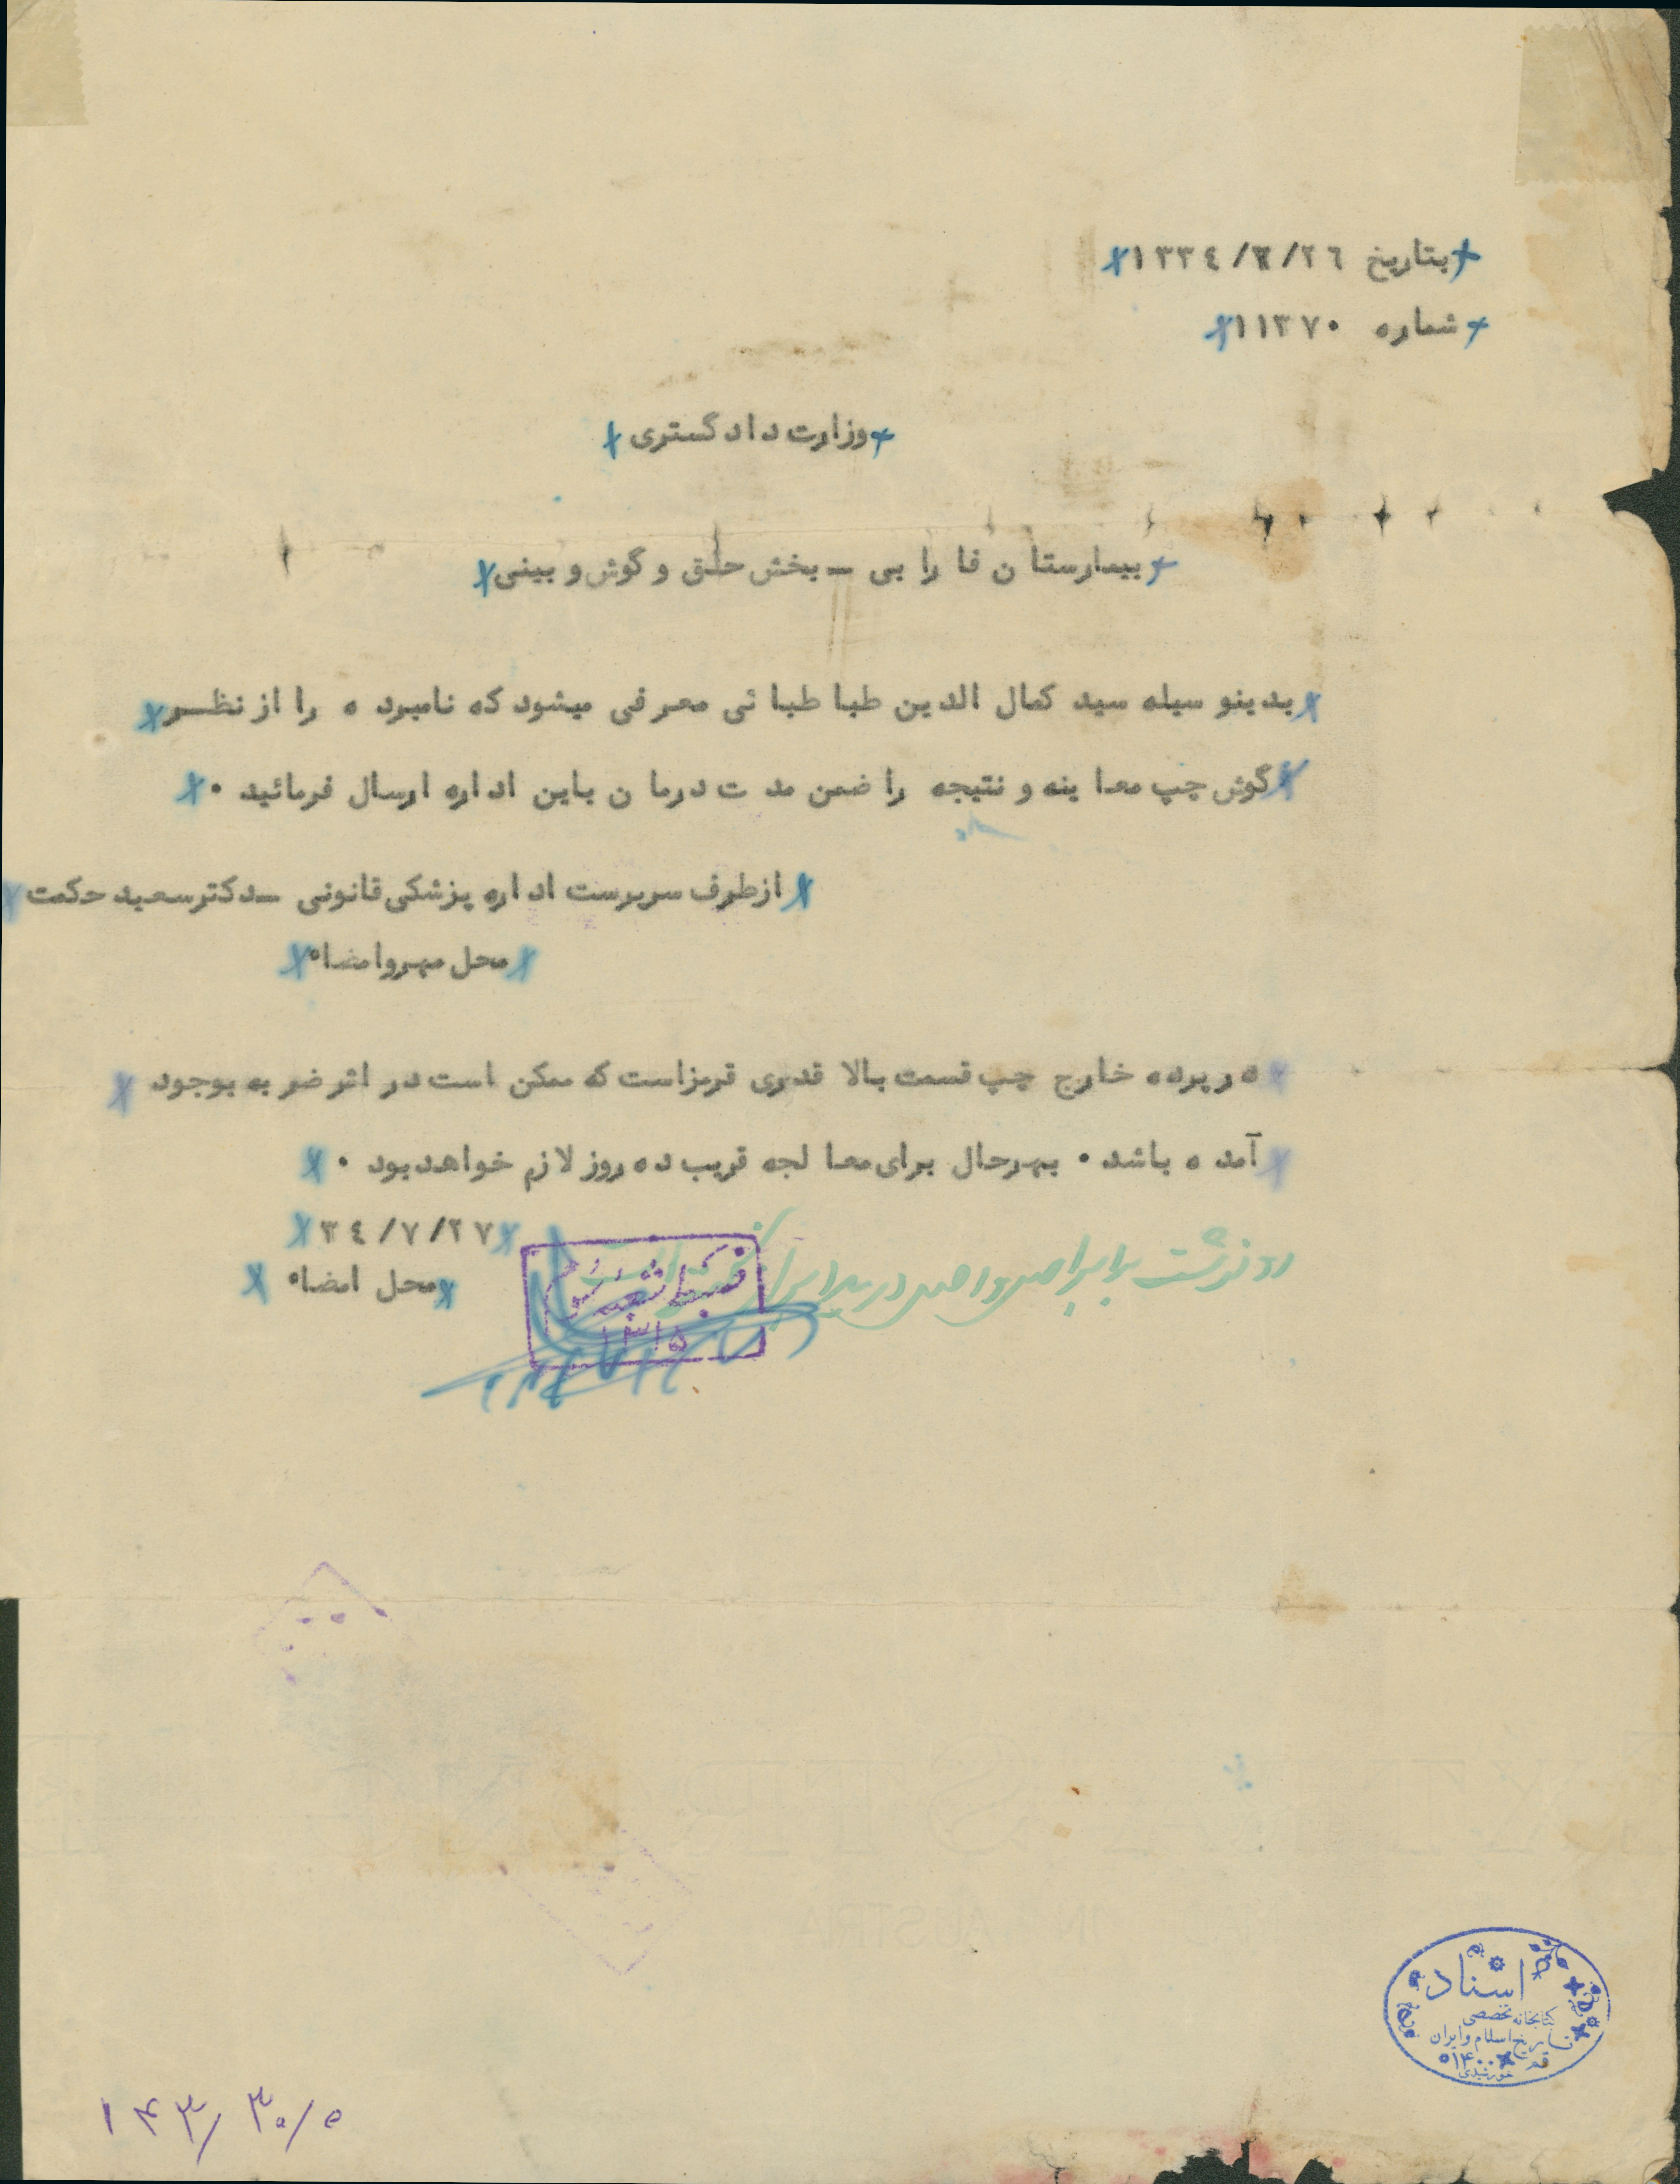 بتاریخ ۱۳۳٤/۷/۲٦
شماره ۱۱۳۷۰
وزارت دادگستری
بیمارستان فارابی - بخش حلق و گوش و بینی
بدینوسیله سید کمال الدین طباطبائی معرفی میشود که نامبرده را از نظر
گوش چپ معاینه و نتیجه را ضمن مدت درمان باین اداره ارسال فرمائید ۰
ازطرف سرپرست اداره پزشکی قانونی - دکتر سعید حکمت
محل مهر و امضاء
در پرده خارج چپ قسمت بالا قدری قرمز است که ممکن است در اثر ضربه بوجود
آمده باشد ۰ بهرحال برای معالجه قریب ده روز لازم خواهد بود ۰
۳٤/۷/۲۷
محل امضاء
رونوشت برابر اصل و اصل در
۱۳۱۵
اسناد
کتابخانه تخصصی
تاریخ اسلام و ایران
قم
۱۴۰۰
خورشیدی
۱۴۳/۳۰/۵
IN AUSTRIA